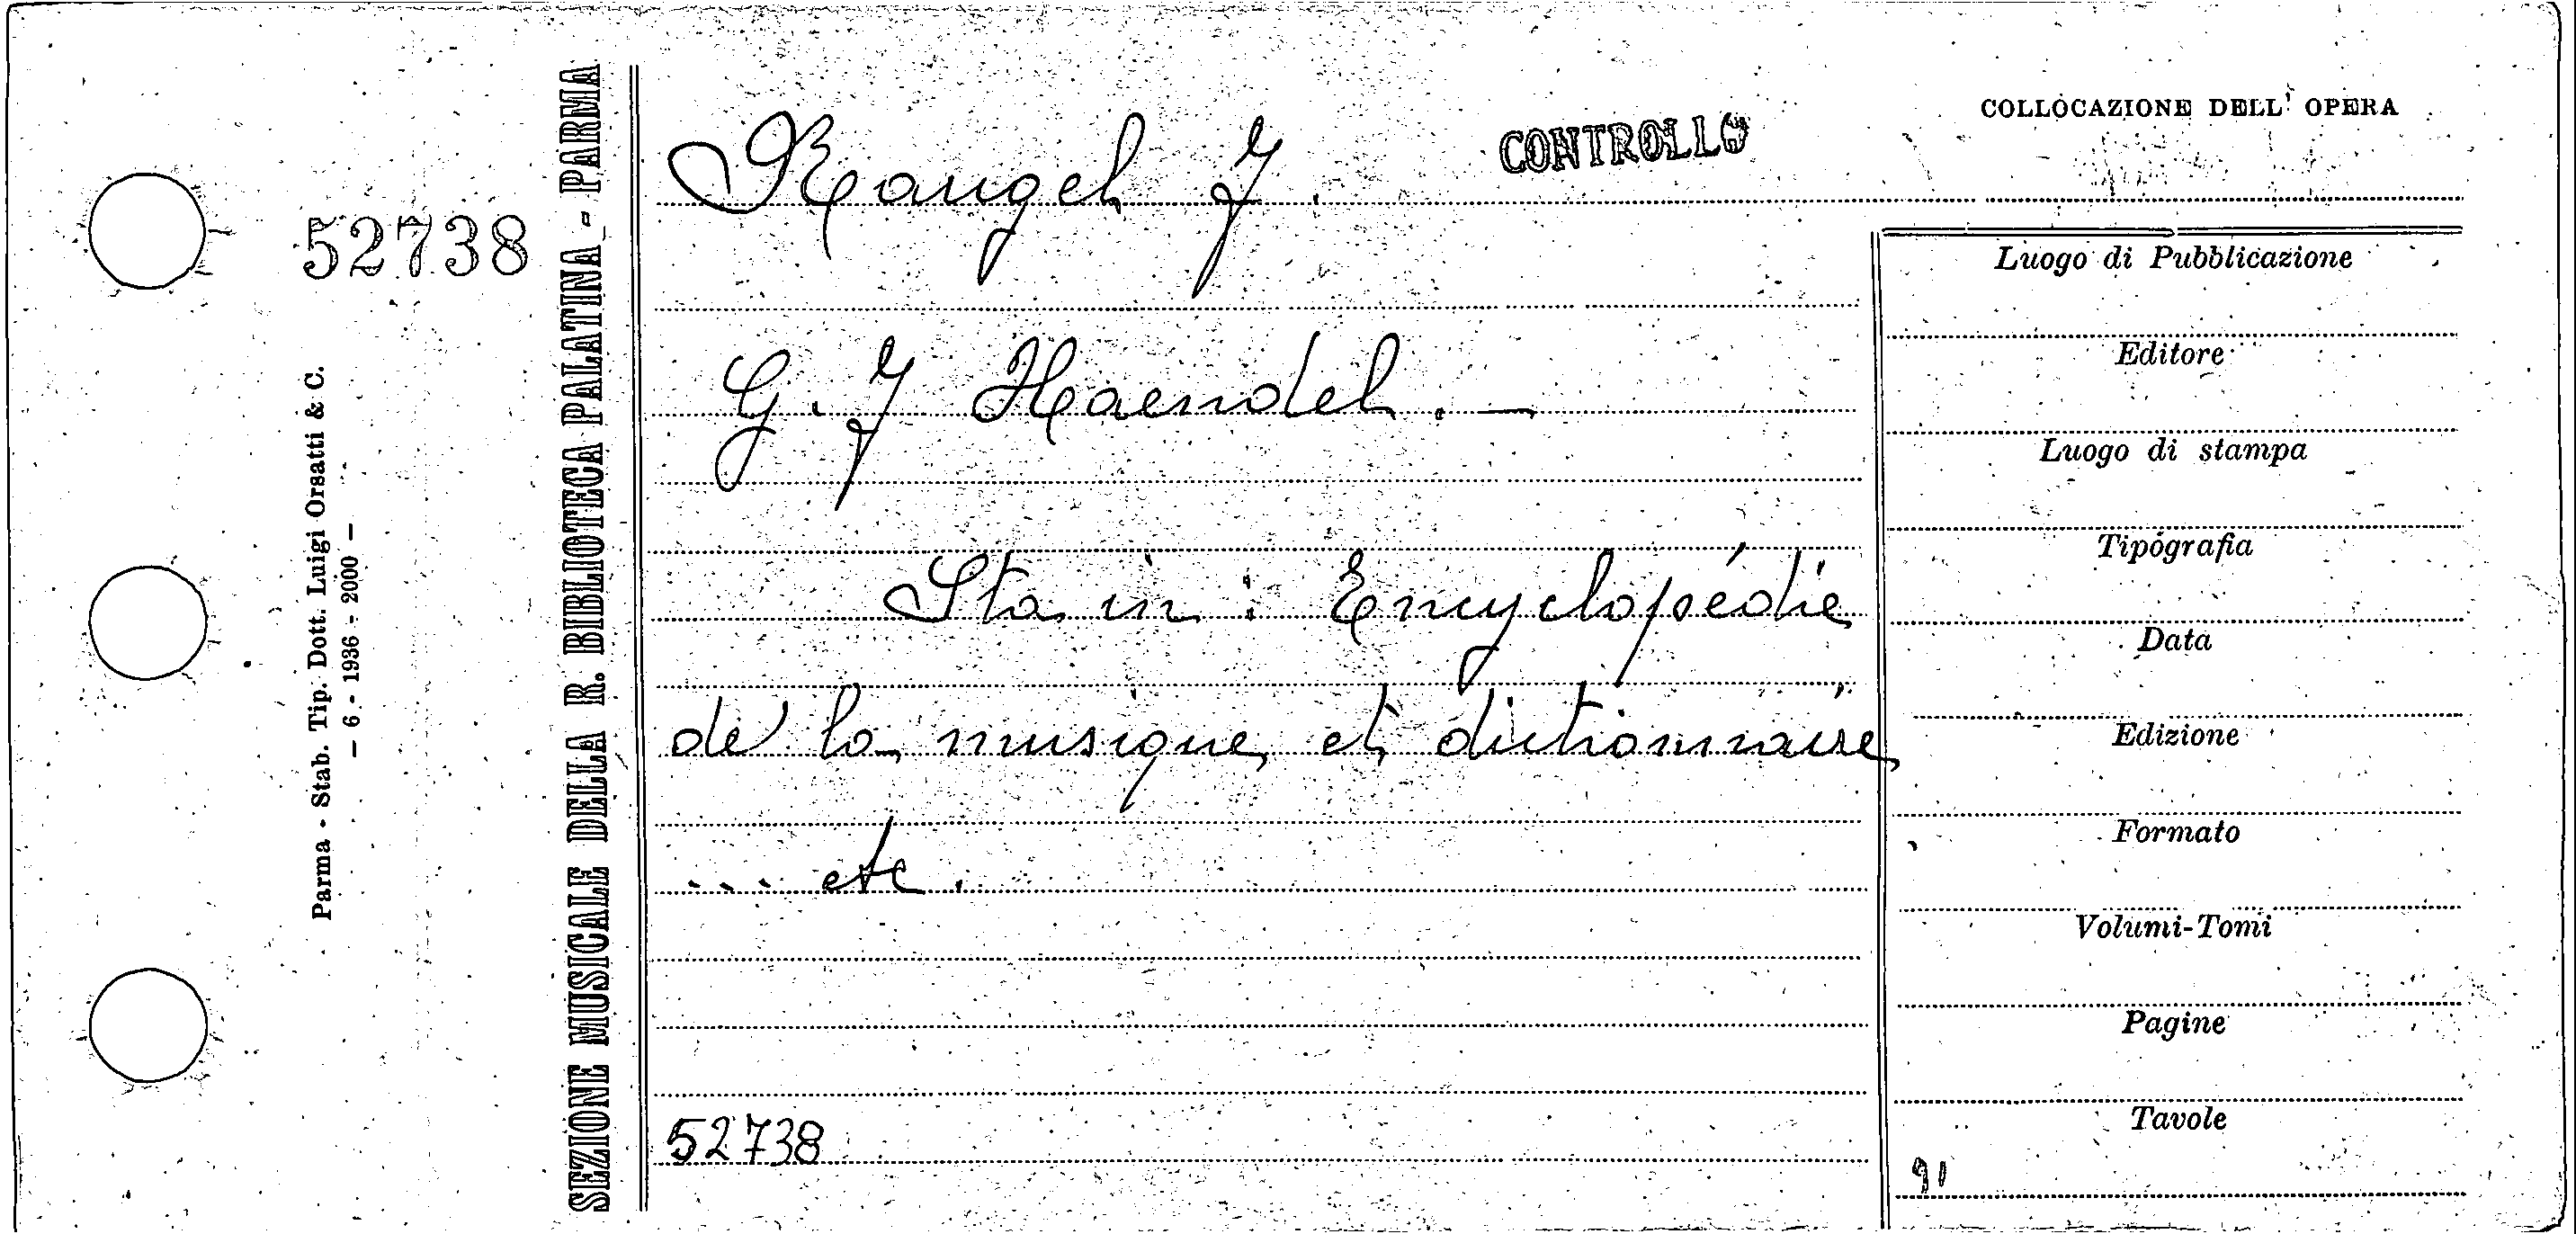 52738
Parma - Stab. Tip. Dott. Luigi Orsatti & C.
— 6 - 1936 - 2000 —
SEZIONE MUSICALE DELLA R. BIBLIOTECA PALATINA - PARMA
CONTROLLO
G. J Haendel. —
Sta in: Encyclopédie
de la musique et dictionnaire
... etc.
52738
COLLOCAZIONE DELL' OPERA
Luogo di Pubblicazione
Editore
Luogo di stampa
Tipografia
Data
Edizione
Formato
Volumi-Tomi
Pagine
Tavole
91